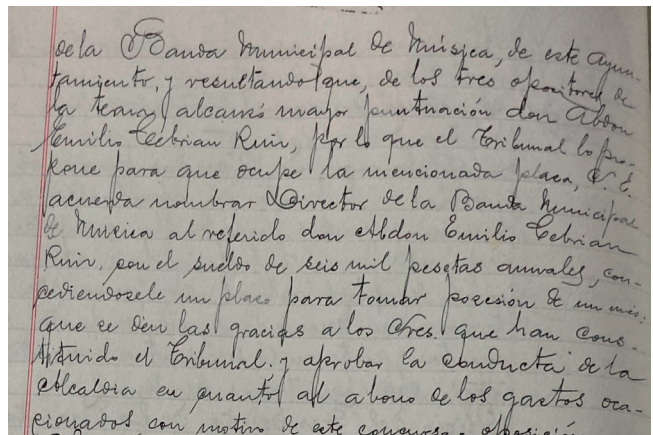 de la Banda Municipal de Música, de este Ayun-
tamiento, y resultando que, de los tres opositores de
la terna, alcanzó mayor puntuación don Abdon
Emilio Cebrian Ruiz, por lo que el Tribunal lo pro-
pone para que ocupe la mencionada plaza, S. E.
acuerda nombrar Director de la Banda Municipal
de Musica al referido don Abdon Emilio Cebrian
Ruiz, con el sueldo de seis mil pesetas anuales, con-
cediéndosele un plazo para tomar posesión de un mes;
que se den las gracias a los Sres. que han cons-
tituido el Tribunal; y aprobar la conducta de la
Alcaldia en cuanto al abono de los gastos oca-
cionados con motivo de este concurso-oposició